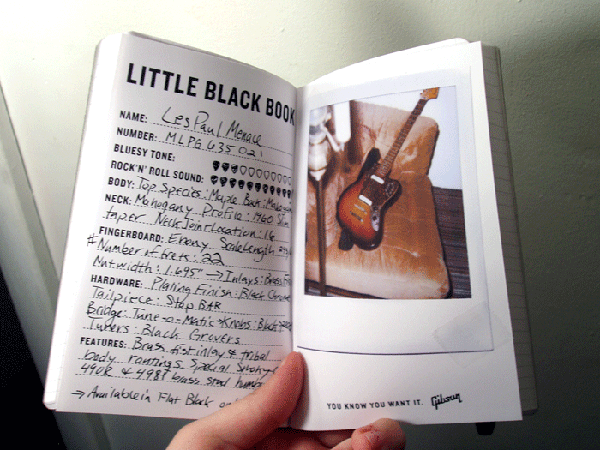 LITTLE BLACK BOOK
NAME: Les Paul Menace
NUMBER: MLPG435021
BLUESY TONE:
ROCK'N'ROLL SOUND:
BODY: Top Species: Maple Back:
NECK: Mahogany Profile: Slim
taper Neck Joint Location: 16
FINGERBOARD: Ebony Scale Length
# Number of frets: 22
Nut width: 1.695" → Inlays: Brass
HARDWARE: Plating Finish: Black Chrome
Tailpiece: Stop BAR
Bridge: Tune-o-Matic Knobs: Black
Tuners: Black Grovers
FEATURES: Brass fist inlay & tribal
body routings. Special
490R & 498T brass stud
→ Available in Flat Black
YOU KNOW YOU WANT IT. Gibson